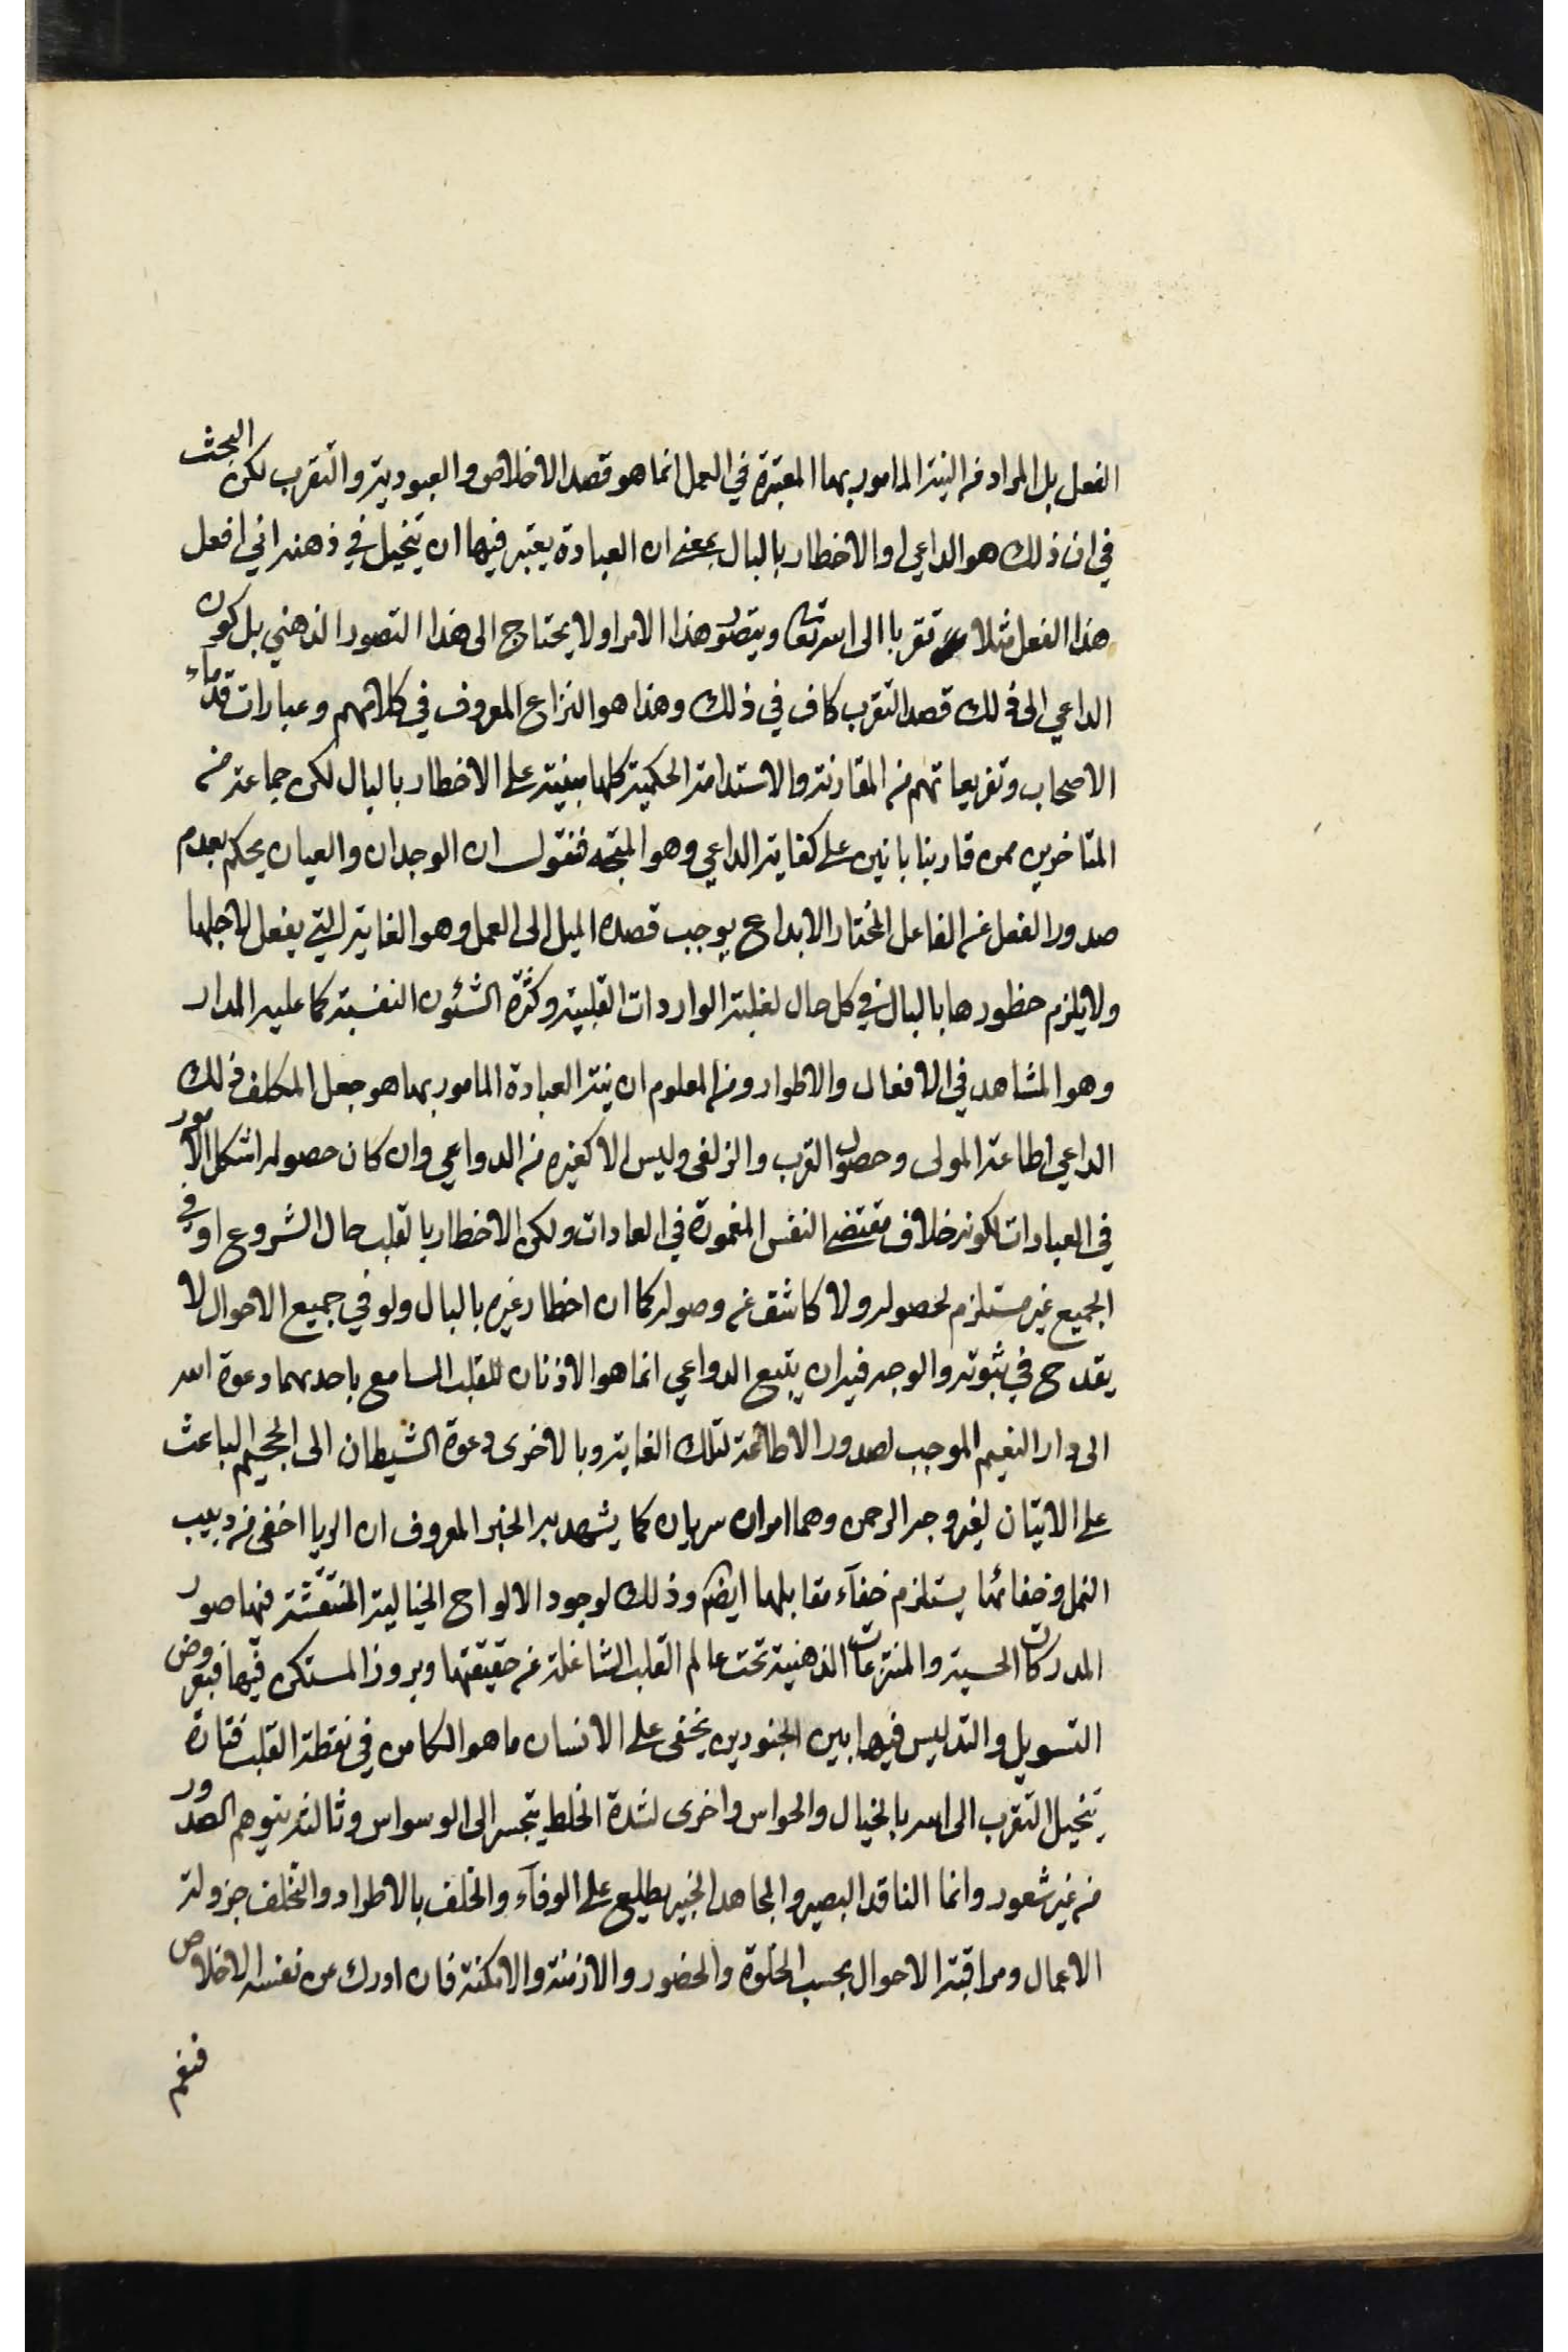 الفعل بل المراد من النية المامور بها المعتبرة في العمل انما هو قصد الاخلاص والعبودية والتقرب لكن البحث
في ان ذلك هو الداعي او الاخطار بالبال بمعنى ان العبادة يعتبر فيها ان يتخيل في ذهنه اني افعل
هذا الفعل مثلا تقربا الى الله تعالى ويتصور هذا الامر او لا يحتاج الى هذا التصور الذهني بل كون
الداعي الى ذلك قصد التقرب كاف في ذلك وهذا هو النزاع المعروف في كلامهم وعبارات قدماء
الاصحاب وتفريعاتهم من المقارنة والاستدامة الحكمية كلها مبنية على الاخطار بالبال لكن جماعة من
المتاخرين ممن قاربنا بانين على كفاية الداعي وهو المتجه فنقول ان الوجدان والعيان يحكم بعدم
صدور الفعل عن الفاعل المختار الا بداع يوجب قصده الميل الى العمل وهو الغاية التي يفعل لاجلها
ولا يلزم حظورها بالبال في كل حال لغلبة الواردات القلبية وكثرة الشئون النفسية كما عليه المدار
وهو المشاهد في الافعال والاطوار ومن المعلوم ان نية العبادة المامور بها هو جعل المكلف ذلك
الداعي اطاعة المولى وحصول القرب والزلفى وليس الا كغيره من الدواعي وان كان حصوله اشكل الامور
في العبادات لكونه خلاف مقتضى النفس المغمورة في العادات ولكن الاخطار بالقلب حال الشروع او في
الجميع غير مستلزم لحصوله ولا كاشف عن وصوله كما ان اخطار غيره بالبال ولو في جميع الاحوال لا
يقدح في ثبوته والوجه فيه ان يتبع الدواعي انما هو الاذنان للقلب السامع باحدهما دعوة الله
الى دار النعيم الموجب لصدور الاطاعة لتلك الغاية وبالاخرى دعوة الشيطان الى الجحيم الباعث
على الاتيان لغير وجه الرحمن وهما امران سريان كما يشهد به الخبر المعروف ان الريا اخفى من دبيب
النمل وخفائها يستلزم خفآء مقابلها ايضا وذلك لوجود الالواح الخيالية المنتقشة فيها صور
المدركات الحسية والمنتزعات الذهنية تحت عالم القلب الشاغلة عن حقيقتها وبروز المستكن فيها فبعروض
التسويل والتدليس فيها بين الجنودين يخفى على الانسان ما هو الكامن في نقطة القلب فتارة
يتخيل التقرب الى الله بالخيال والحواس واخرى لشدة الخلط يتجسر الى الوسواس وثالثة يتوهم الصدور
من غير شعور وانما الناقد البصير والمجاهد الخبير يطلع على الوفآء والخلف بالاطوار والتخلف جزولة
الاعمال ومراقبة الاحوال بحسب الخلوة والحضور والازمنة والامكنة فان ادرك من نفسه الاخلاص
فنعم